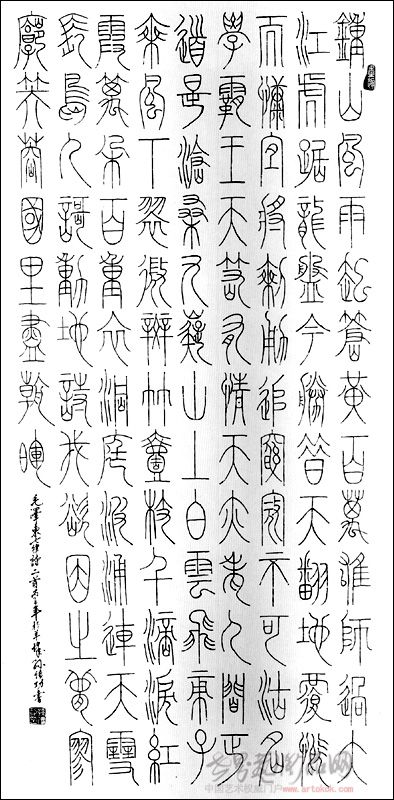 鍾山風雨起蒼黃百萬雄師過大
江虎踞龍盤今勝昔天翻地覆慨
而慷宜將剩勇追窮寇不可沽名
學霸王天若有情天亦老人間正
道是滄桑九嶷山上白雲飛帝子
乘風下翠微斑竹壹枝千滴淚紅
霞萬朵百重衣洞庭波涌連天雪
長島人謌動地詩我欲因之夢寥
廓芙蓉國里盡朝暉
毛澤東七律詩二首
中国艺术权威门户 www.artokok.com